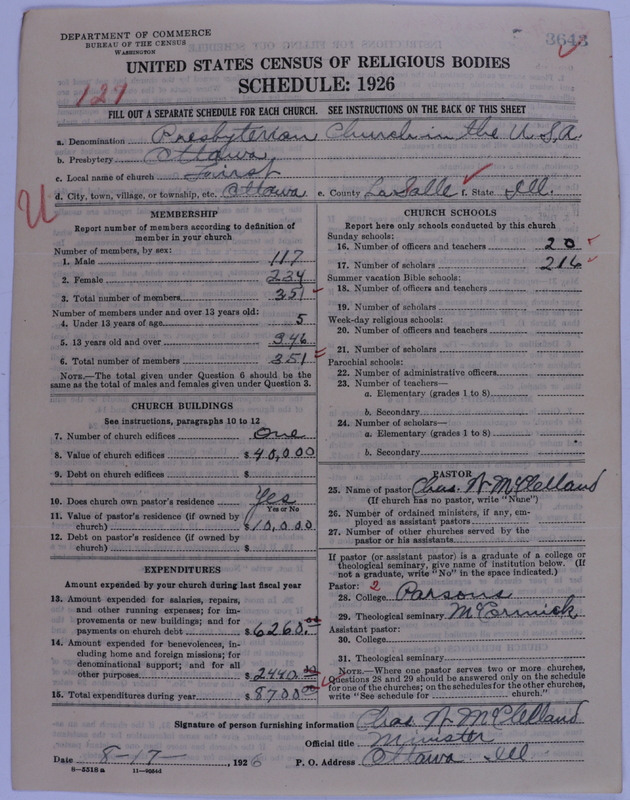 DEPARTMENT OF COMMERCE
BUREAU OF THE CENSUS
WASHINGTON
3643
UNITED STATES CENSUS OF RELIGIOUS BODIES
SCHEDULE: 1926
127
FILL OUT A SEPARATE SCHEDULE FOR EACH CHURCH. SEE INSTRUCTIONS ON THE BACK OF THIS SHEET
a. Denomination Presbyterian Church in the U.S.A.
b. Presbytery Ottawa
c. Local name of church First
d. City, town, village, or township, etc. Ottawa e. County LaSalle f. State Ill.
U
MEMBERSHIP
Report number of members according to definition of
member in your church
Number of members, by sex:
1. Male 117
2. Female 234
3. Total number of members 351
Number of members under and over 13 years old:
4. Under 13 years of age 5
5. 13 years old and over 346
6. Total number of members 351
NOTE.—The total given under Question 6 should be
same as the total of males and females given under Question 3.
CHURCH BUILDINGS
See instructions, paragraphs 10 to 12
7. Number of church edifices One
8. Value of church edifices $ 40,000
9. Debt on church edifices $
10. Does church own pastor's residence Yes
Yes or No
11. Value of pastor's residence (if owned by
church) $ 10,000
12. Debt on pastor's residence (if owned by
church) $
EXPENDITURES
Amount expended by your church during last fiscal year
13. Amount expended for salaries, repairs,
and other running expenses; for im-
provements or new buildings; and for
payments on church debt $ 6260.00
14. Amount expended for benevolences, in-
cluding home and foreign missions; for
denominational support; and for all
other purposes $ 2440.00
15. Total expenditures during year $ 8700.00
CHURCH SCHOOLS
Report here only schools conducted by this church
Sunday schools:
16. Number of officers and teachers 20
17. Number of scholars 216
Summer vacation Bible schools:
18. Number of officers and teachers
19. Number of scholars
Week-day religious schools:
20. Number of officers and teachers
21. Number of scholars
Parochial schools:
22. Number of administrative officers
23. Number of teachers—
a. Elementary (grades 1 to 8)
b. Secondary
24. Number of scholars—
a. Elementary (grades 1 to 8)
b. Secondary
PASTOR
25. Name of pastor Chas. N. McClelland
(If church has no pastor, write "None")
26. Number of ordained ministers, if any, em-
ployed as assistant pastors
27. Number of other churches served by the
pastor or his assistants
If pastor (or assistant pastor) is a graduate of a college or
theological seminary, give name of institution below. (If
not a graduate, write "No" in the space indicated.)
Pastor: 2
28. College Parsons
29. Theological seminary McCormick
Assistant pastor:
30. College
31. Theological seminary
NOTE.—Where one pastor serves two or more churches,
Questions 28 and 29 should be answered only on the schedule
for one of the churches; on the schedules for the other churches,
write "See schedule for church."
Signature of person furnishing information Chas. N. McClelland
Official title Minister
Date 8-17-, 1926 P. O. Address Ottawa Ill
8—5518 a